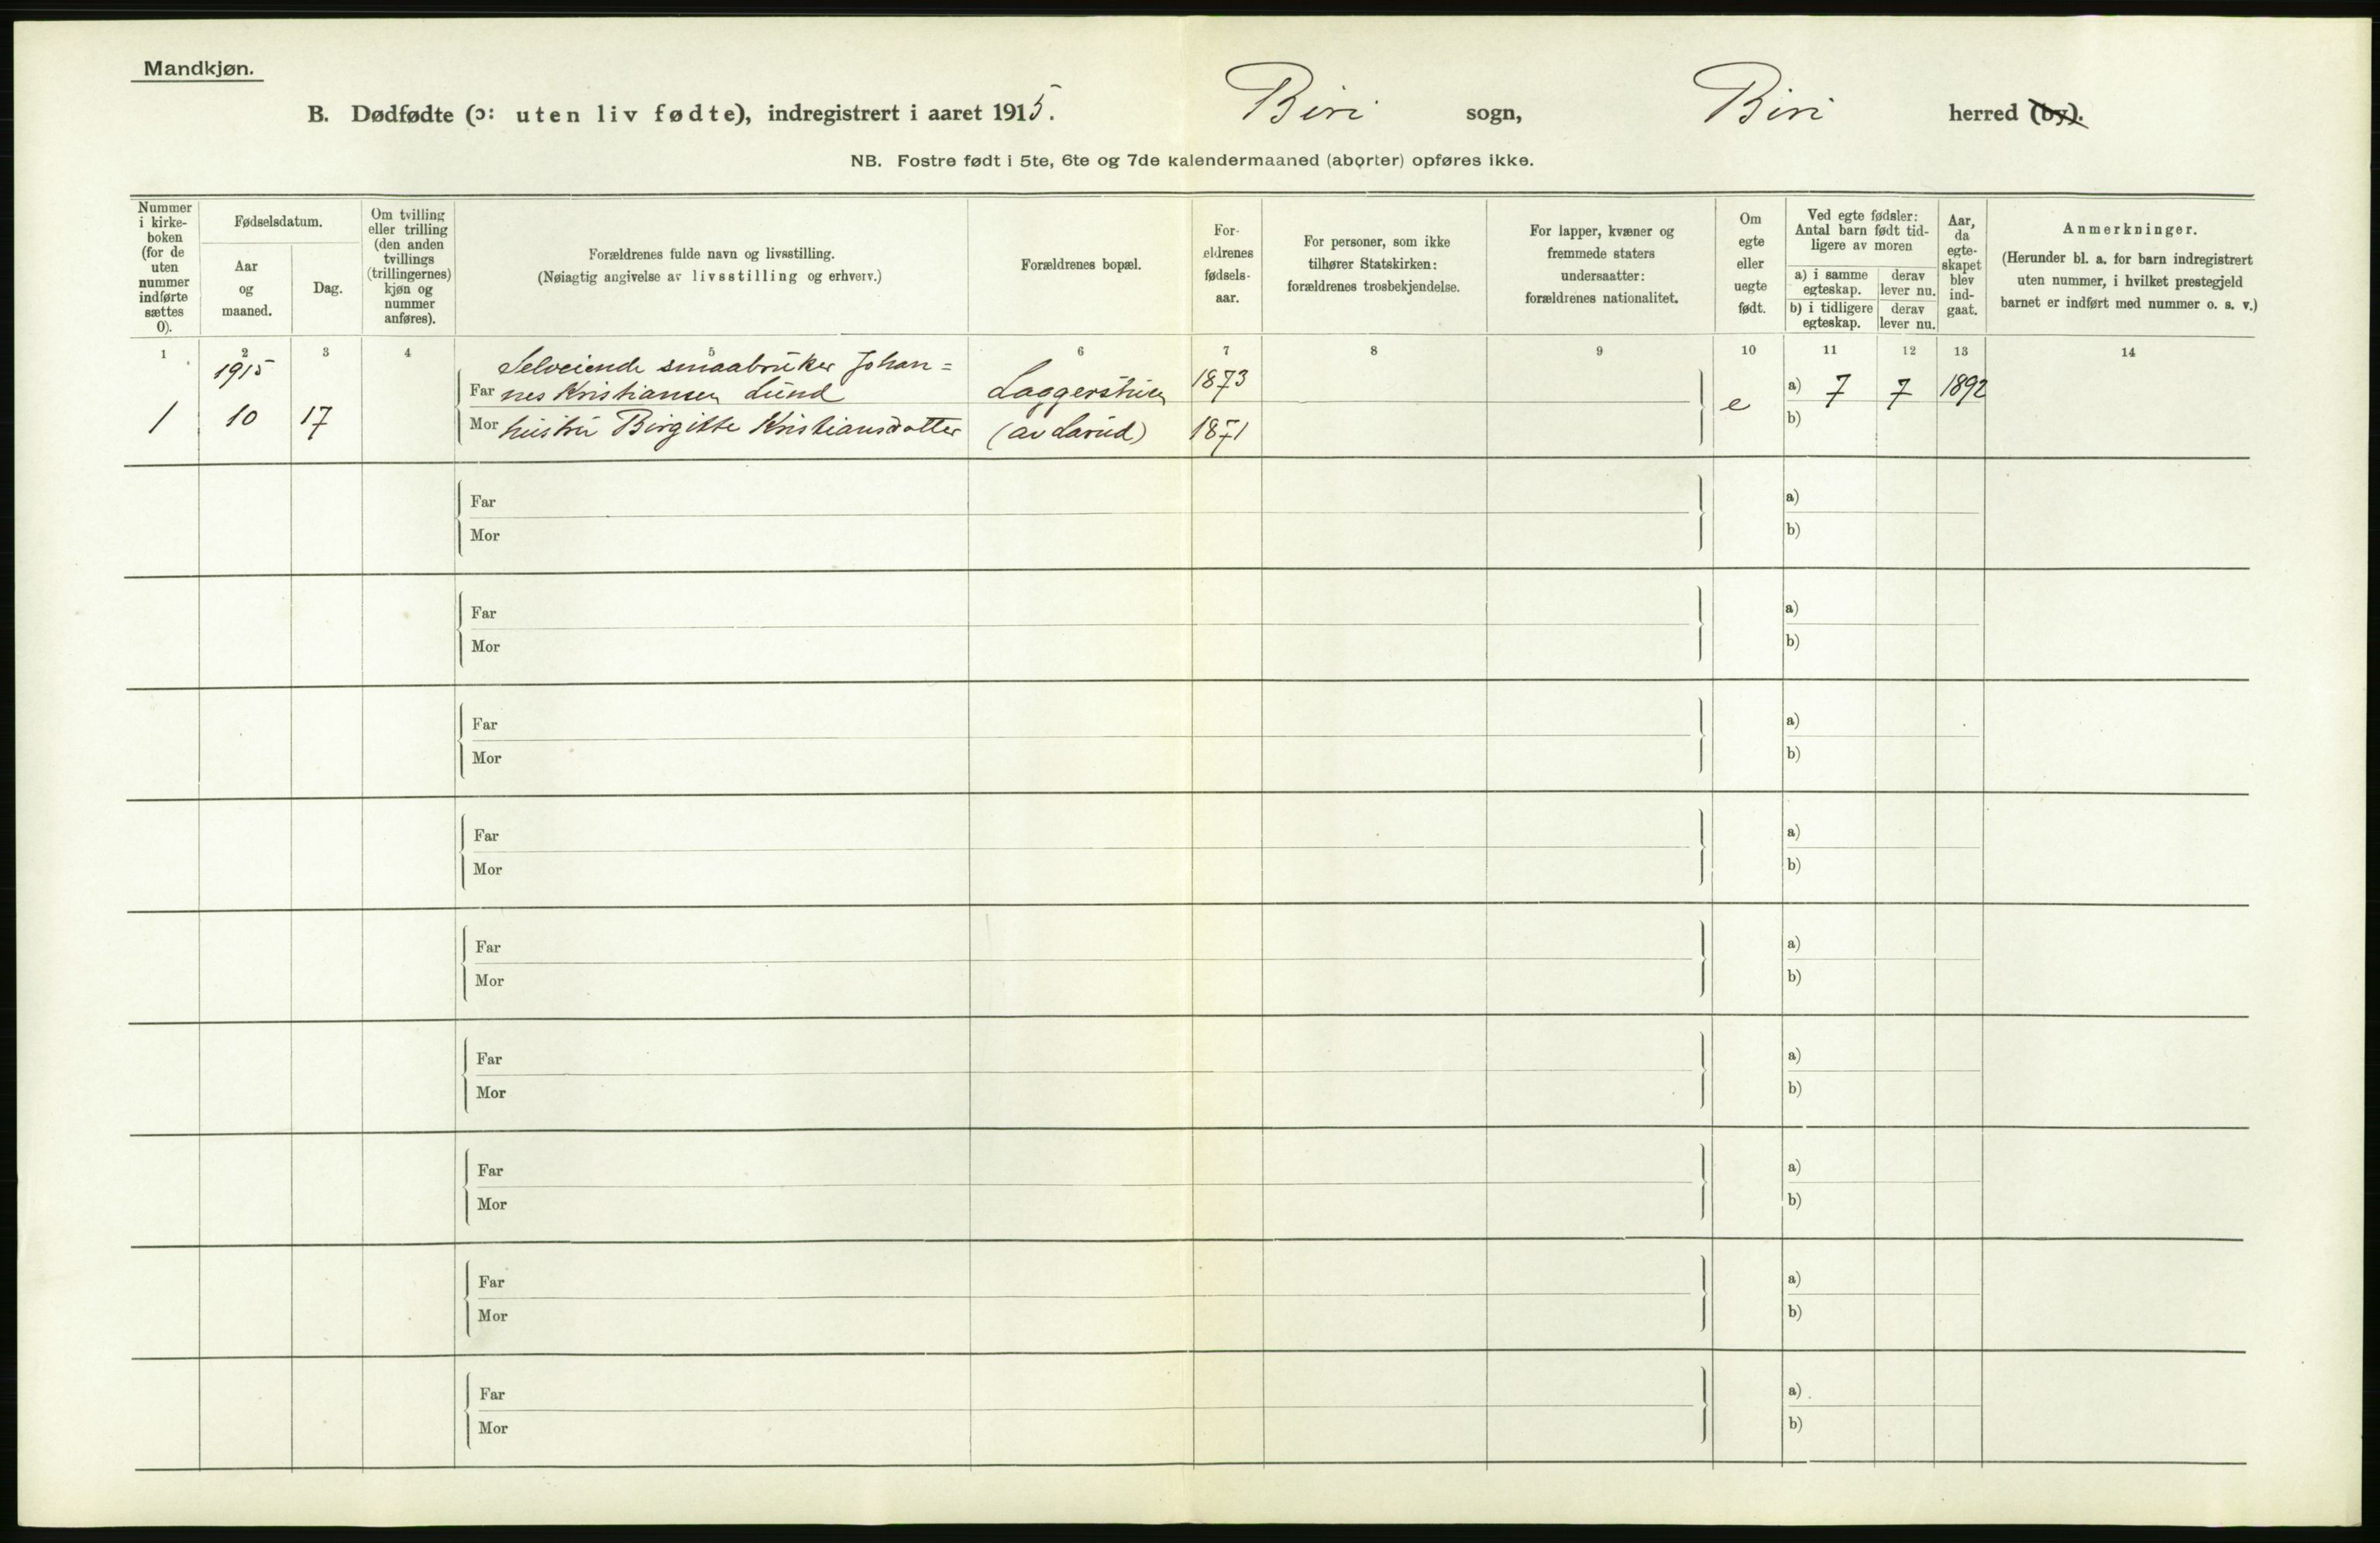 Mandkjøn.
B. Dødfødte (ɔ: uten liv fødte), indregistrert i aaret 1915. Biri sogn, Biri herred (by).
NB. Fostre født i 5te, 6te og 7de kalendermaaned (aborter) opføres ikke.
Nummer
i kirke-
boken
(for de
uten
nummer
indførte
sættes
0).
Fødselsdatum.
Aar
og
maaned.
Dag.
Om tvilling
eller trilling
(den anden
tvillings
(trillingernes)
kjøn og
nummer
anføres).
Forældrenes fulde navn og livsstilling.
(Nøiagtig angivelse av livsstilling og erhverv.)
Forældrenes bopæl.
For-
ældrenes
fødsels-
aar.
For personer, som ikke
tilhører Statskirken:
forældrenes trosbekjendelse.
For lapper, kvæner og
fremmede staters
undersaatter:
forældrenes nationalitet.
Om
egte
eller
uegte
født.
Ved egte fødsler:
Antal barn født tid-
ligere av moren
a) i samme
egteskap.
derav
lever nu.
b) i tidligere
egteskap.
derav
lever nu.
Aar,
da
egte-
skapet
blev
ind-
gaat.
Anmerkninger.
(Herunder bl. a. for barn indregistrert
uten nummer, i hvilket prestegjeld
barnet er indført med nummer o. s. v.)
1 2 3 4 5 6 7 8 9 10 11 12 13 14
1915 Selveiende smaabruker Johan=
Far nes Kristiansen Lund 1873 a) 7 7 1892
1 10 17 Mor hustru Birgitte Kristiansdatter (av Larud) 1871 e b)
Far a)
Mor b)
Far a)
Mor b)
Far a)
Mor b)
Far a)
Mor b)
Far a)
Mor b)
Far a)
Mor b)
Far a)
Mor b)
Far a)
Mor b)
Far a)
Mor b)